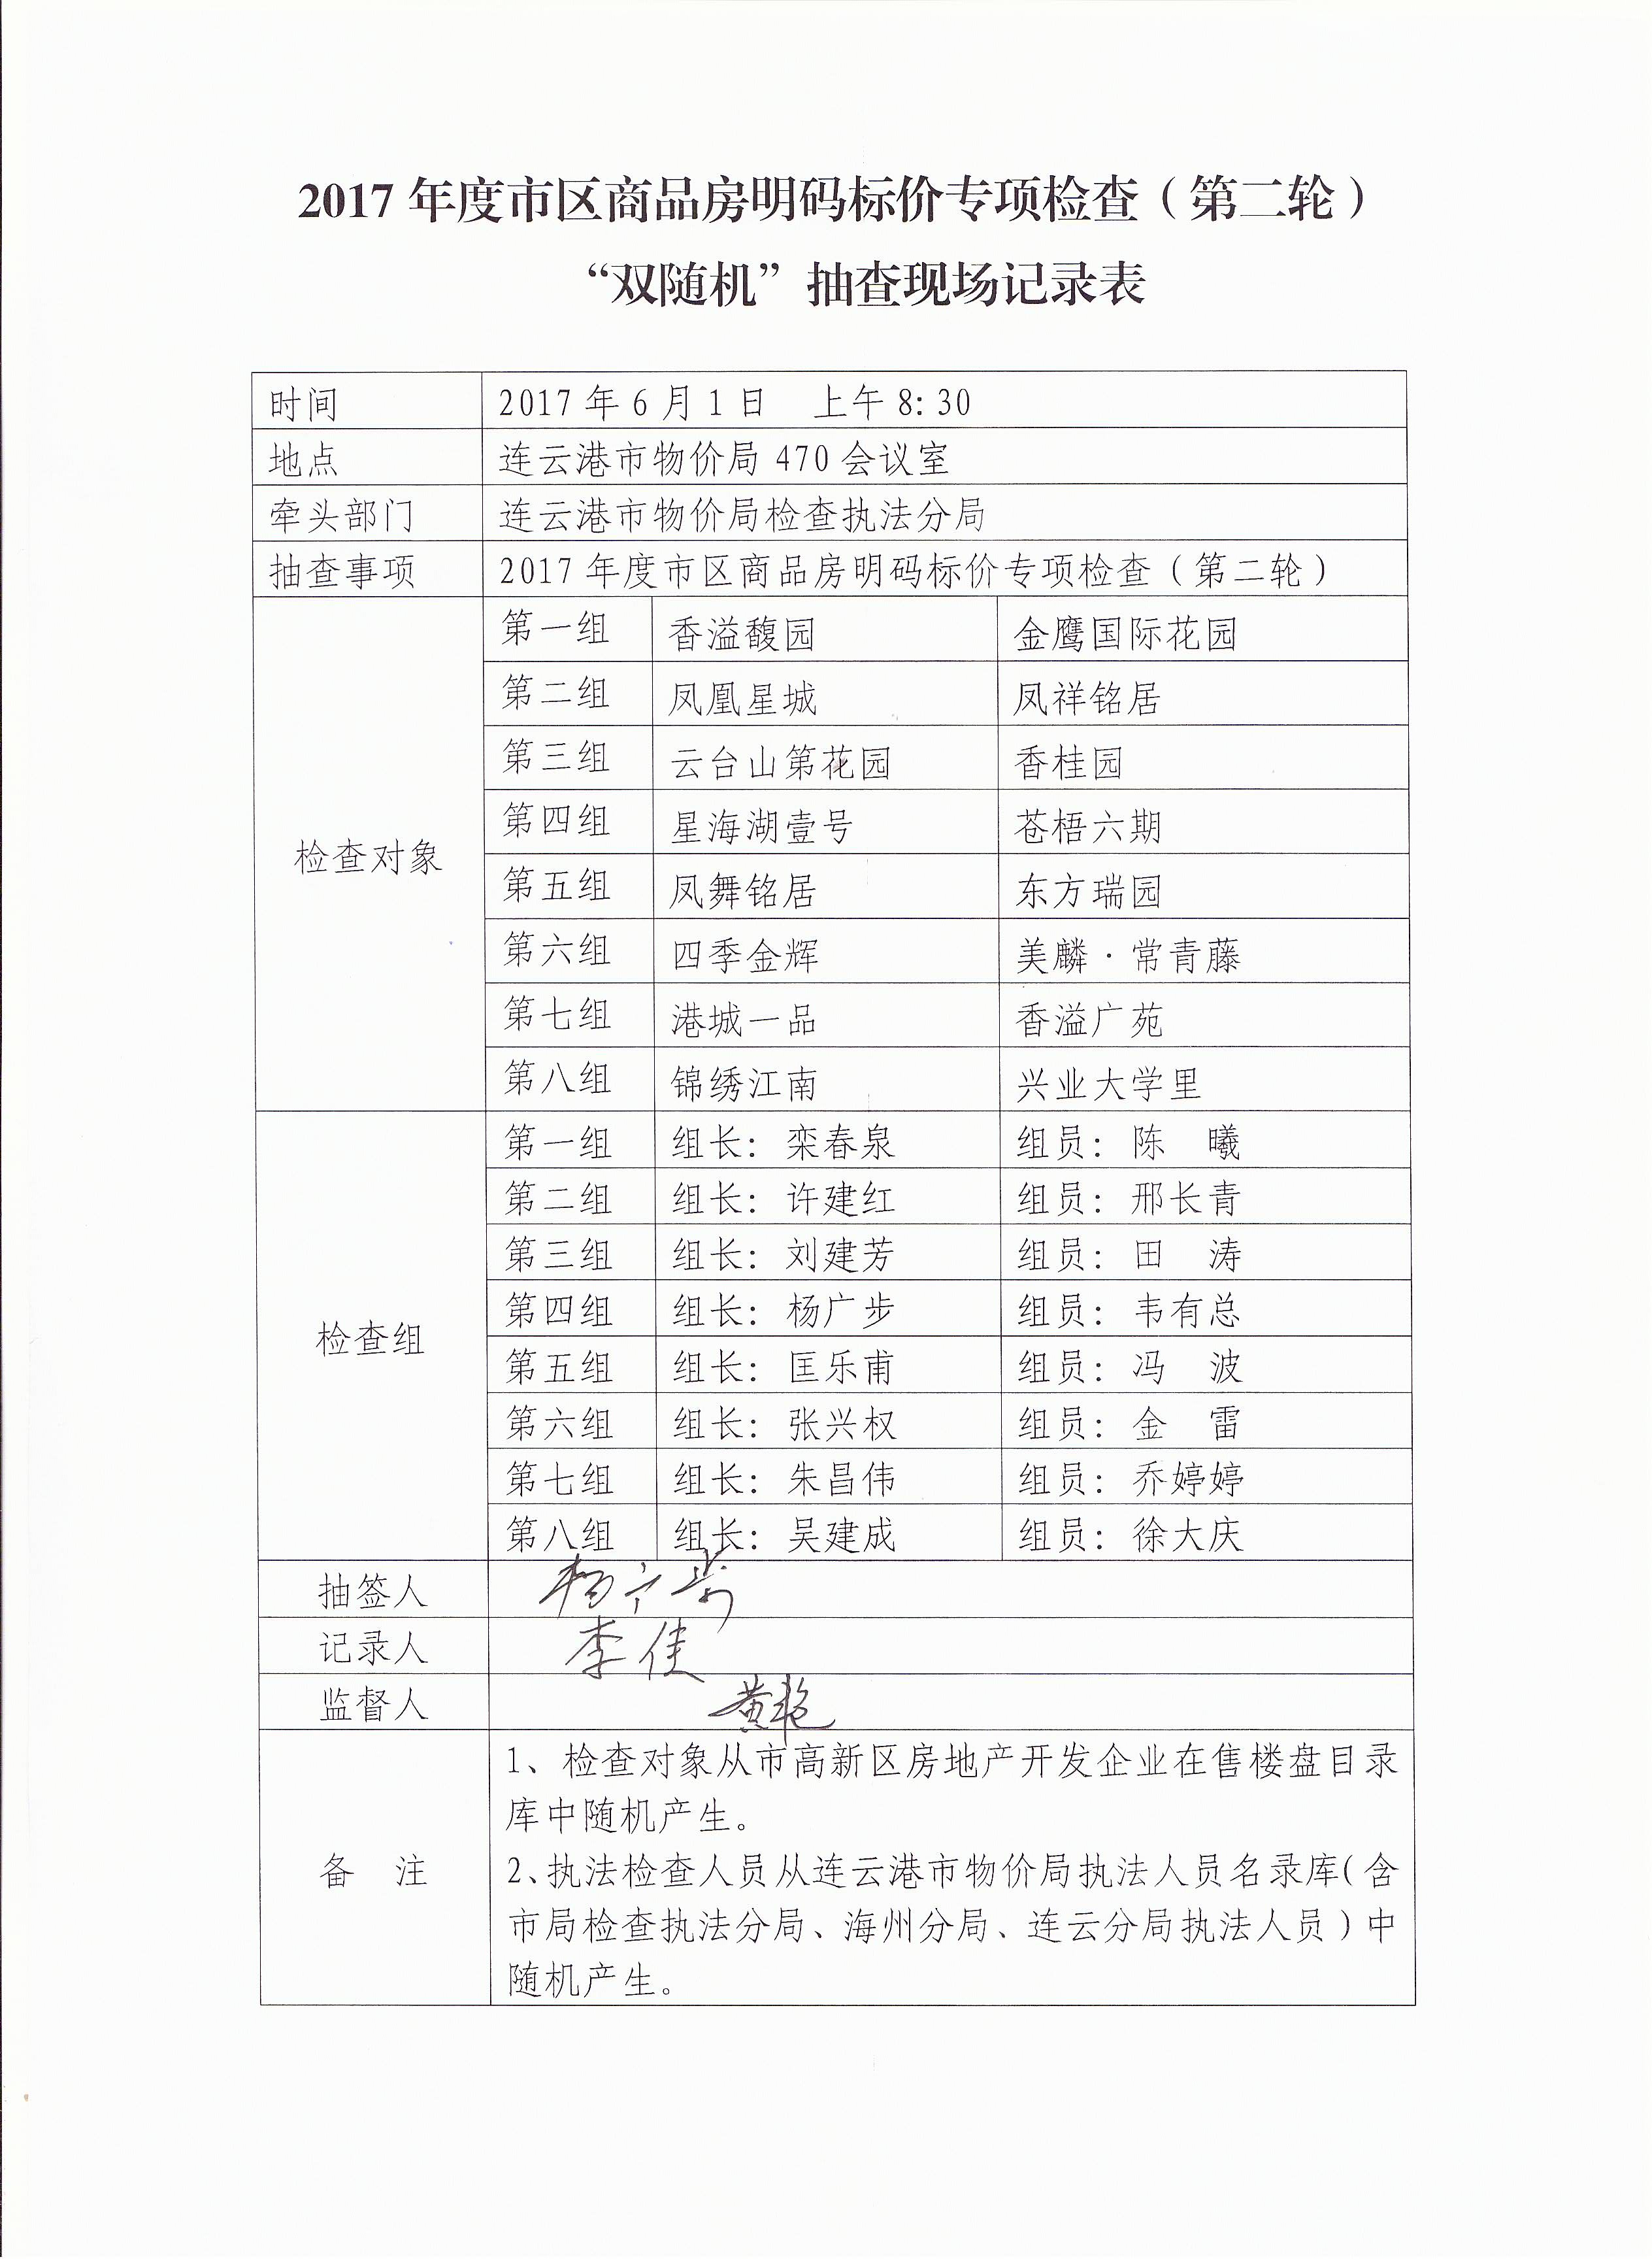 2017 年度市区商品房明码标价专项检查（第二轮）
“双随机”抽查现场记录表
时间 2017 年 6 月 1 日 上午 8:30
地点 连云港市物价局 470 会议室
牵头部门 连云港市物价局检查执法分局
抽查事项 2017 年度市区商品房明码标价专项检查（第二轮）
检查对象
第一组 香溢馥园 金鹰国际花园
第二组 凤凰星城 凤祥铭居
第三组 云台山第花园 香桂园
第四组 星海湖壹号 苍梧六期
第五组 凤舞铭居 东方瑞园
第六组 四季金辉 美麟·常青藤
第七组 港城一品 香溢广苑
第八组 锦绣江南 兴业大学里
检查组
第一组 组长：栾春泉 组员：陈 曦
第二组 组长：许建红 组员：邢长青
第三组 组长：刘建芳 组员：田 涛
第四组 组长：杨广步 组员：韦有总
第五组 组长：匡乐甫 组员：冯 波
第六组 组长：张兴权 组员：金 雷
第七组 组长：朱昌伟 组员：乔婷婷
第八组 组长：吴建成 组员：徐大庆
抽签人 杨广步
记录人 李佳
监督人 黄艳
备 注
1、检查对象从市高新区房地产开发企业在售楼盘目录
库中随机产生。
2、执法检查人员从连云港市物价局执法人员名录库（含
市局检查执法分局、海州分局、连云分局执法人员）中
随机产生。